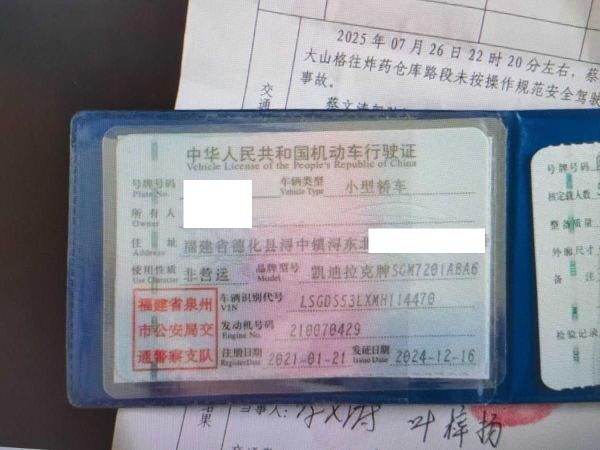 2025年07月26日22时20分左右，蔡
大山格往炸药仓库路段未按操作规范安全驾驶
事故。
交通
中华人民共和国机动车行驶证
Vehicle License of the People's Republic of China
号牌号码
Plate No.
车辆类型
Vehicle Type
小型轿车
所有人
Owner
住址
Address
福建省德化县浔中镇浔东北
使用性质
Use Character
非营运
品牌型号
Model
凯迪拉克牌SGM7201ABA6
福建省泉州
市公安局交
通警察支队
车辆识别代号
VIN
LSGDS53LXMH114470
发动机号码
Engine No.
210070429
注册日期
Register Date
2021-01-21
发证日期
Issue Date
2024-12-16
号牌号码
核定载人数
整备质量
外廓尺寸
备注
检验记录
果
当事人：
叶梓扬